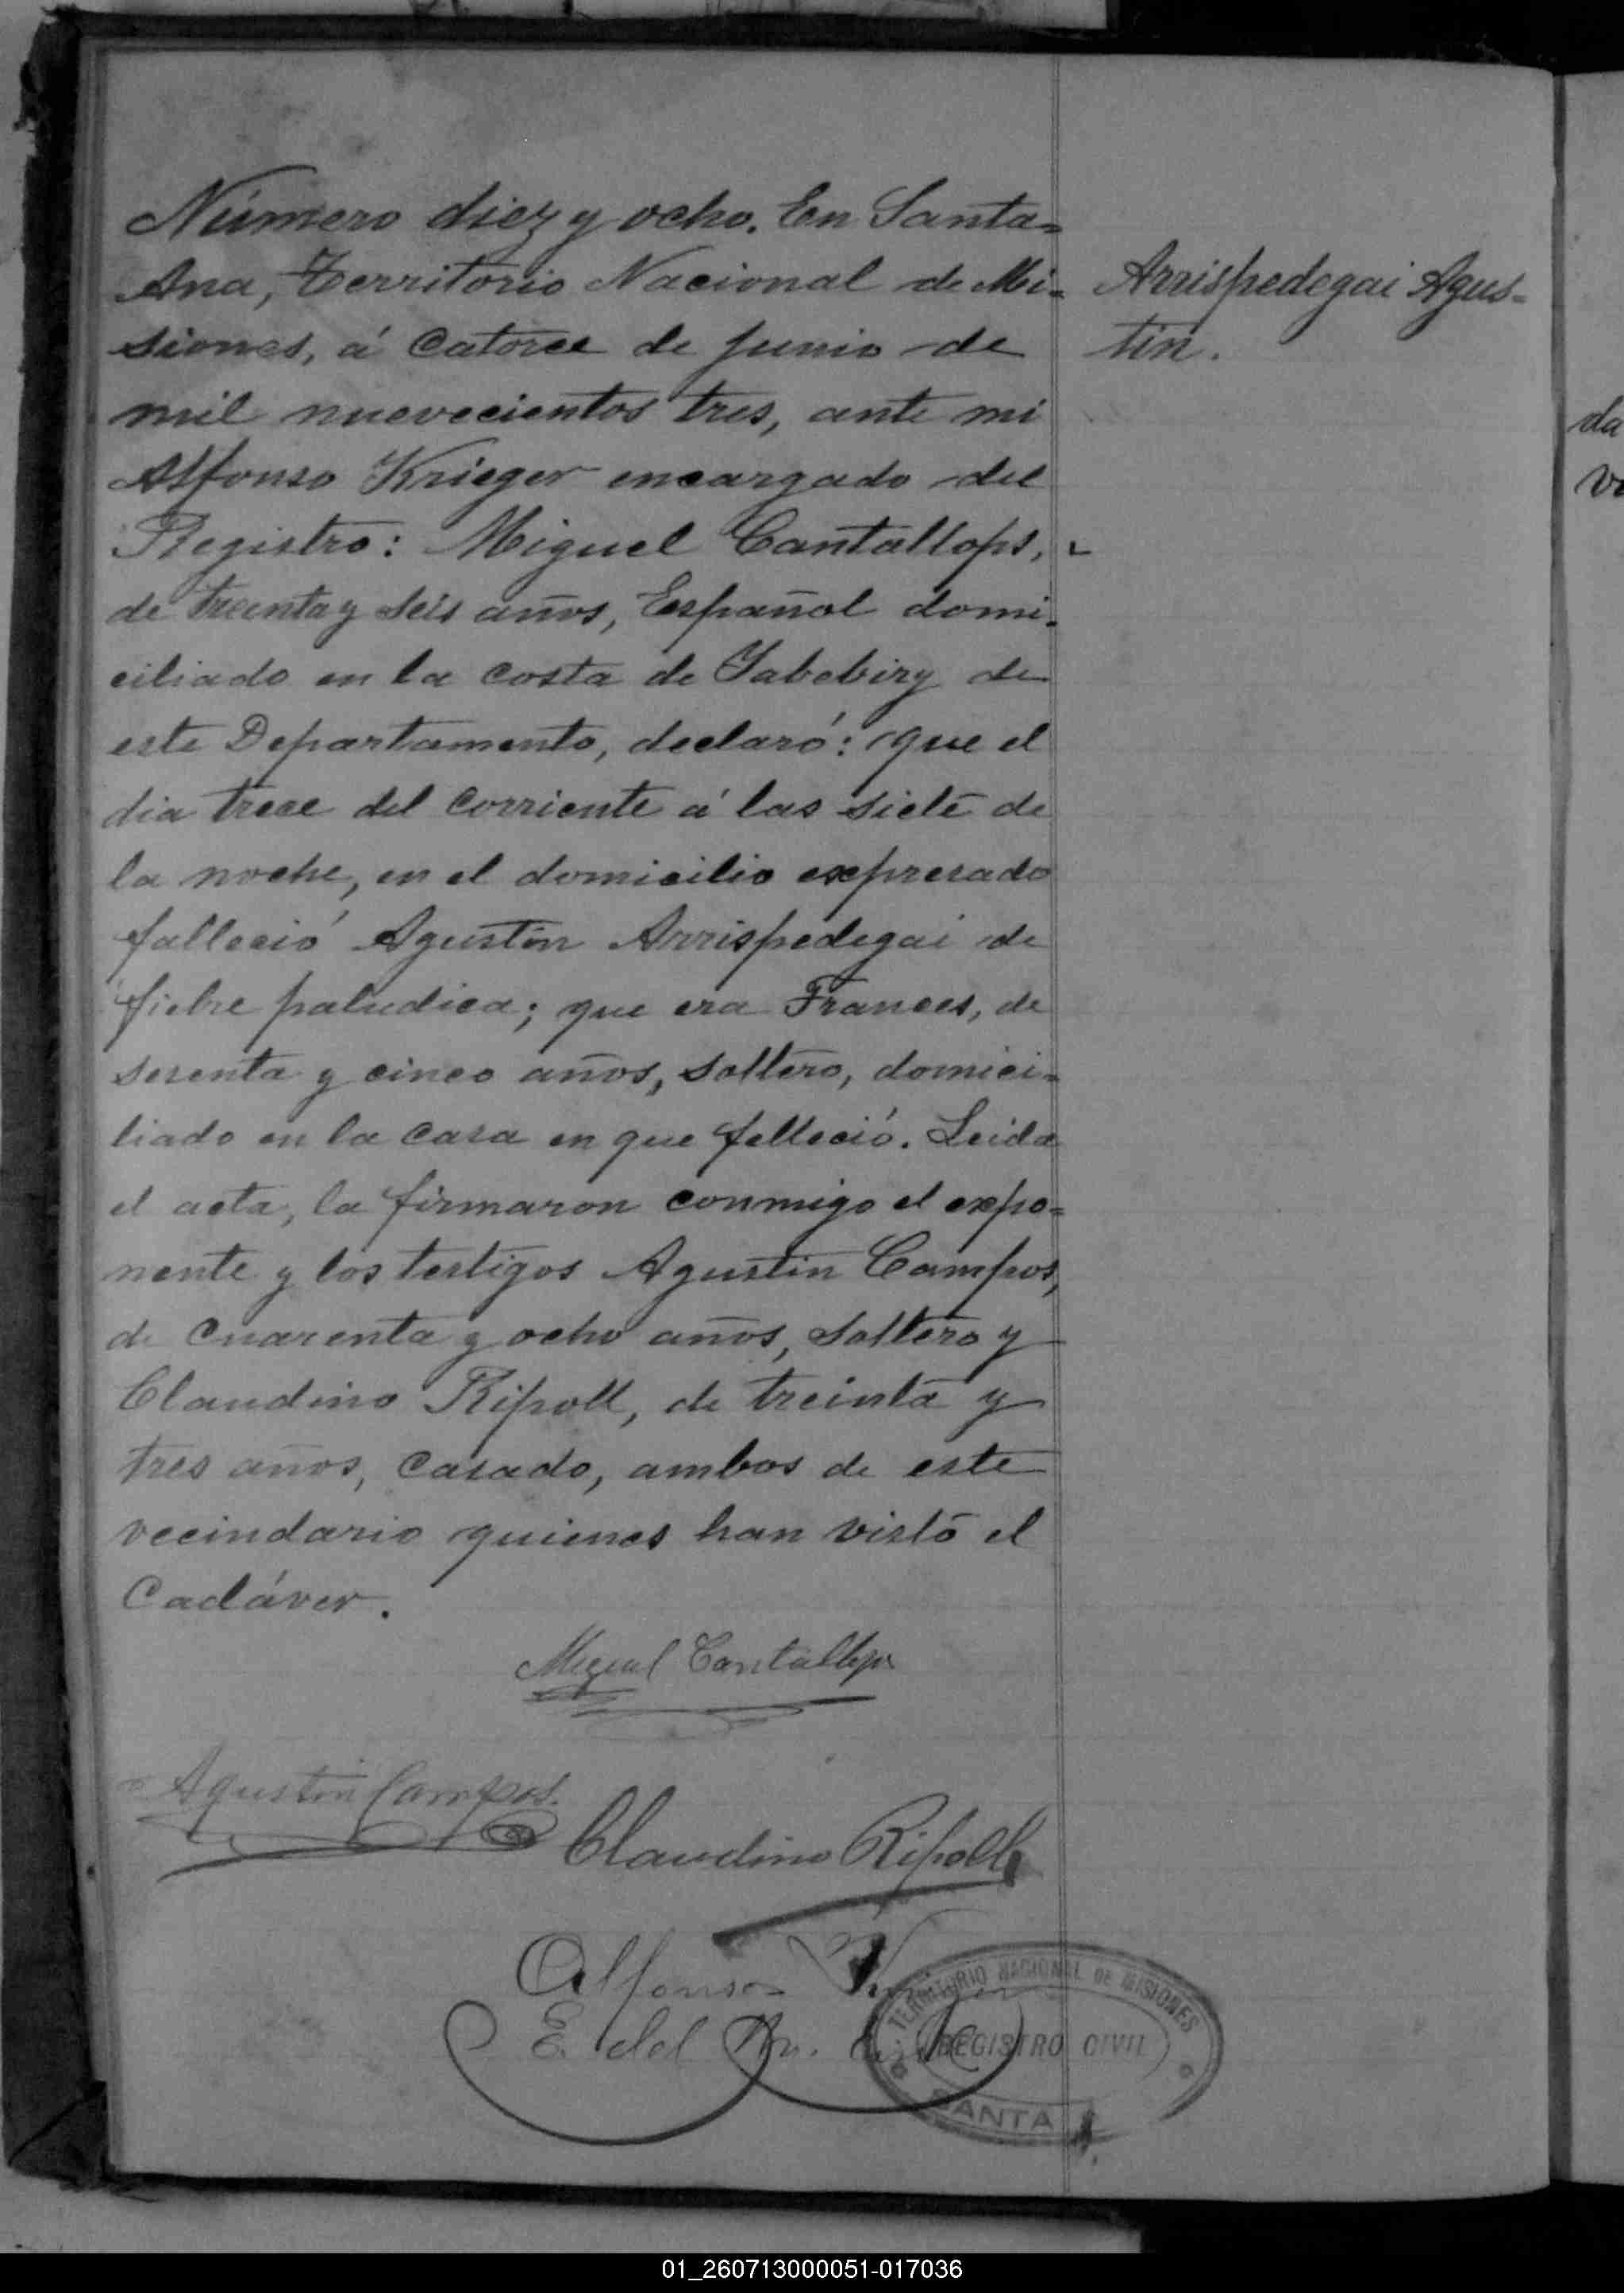 Número diez y ocho. En Santa-
Ana, Territorio Nacional de Mi-
siones, á catorce de junio de
mil nuevecientos tres, ante mi
Alfonso Krieger encargado del
Registro: Miguel Cantallops,
de treinta y seis años, Español domi-
ciliado en la costa de Yabebiry de
este Departamento, declaró: que el
dia trece del corriente á las siete de
la noche, en el domicilio expresado
falleció Agustin Arrispedegai de
fiebre paludica; que era Frances, de
sesenta y cinco años, soltero, domici-
liado en la casa en que falleció. Leida
el acta, la firmaron conmigo el expo-
nente y los testigos Agustin Campos,
de cuarenta y ocho años, soltero y
Claudino Ripoll, de treinta y
tres años, casado, ambos de este
vecindario quienes han visto el
Cadáver.
Arrispedegai Agus-
tin.
Miguel Cantallops
Agustin Campos.
Claudino Ripoll
Alfonso Krieger
E. del
TERRITORIO NACIONAL DE MISIONES
REGISTRO CIVIL
SANTA
da
01_260713000051-017036